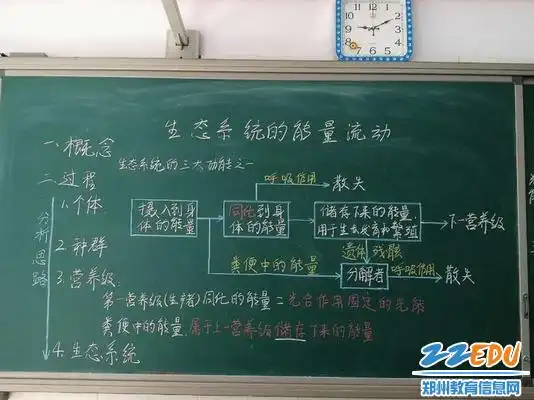 生态系统的能量流动
一、概念
生态系统的三大功能之一
二、过程
呼吸作用 散失
1.个体
摄入到身体的能量
同化到身体的能量
储存下来的能量,用于生长发育和繁殖
下一营养级
分析思路
2.种群
遗体残骸
粪便中的能量
分解者
呼吸作用
散失
3.营养级
第一营养级(生产者)同化的能量=光合作用固定的光能
粪便中的能量,属于上一营养级储存下来的能量
4.生态系统
22EDU
郑州教育信息网